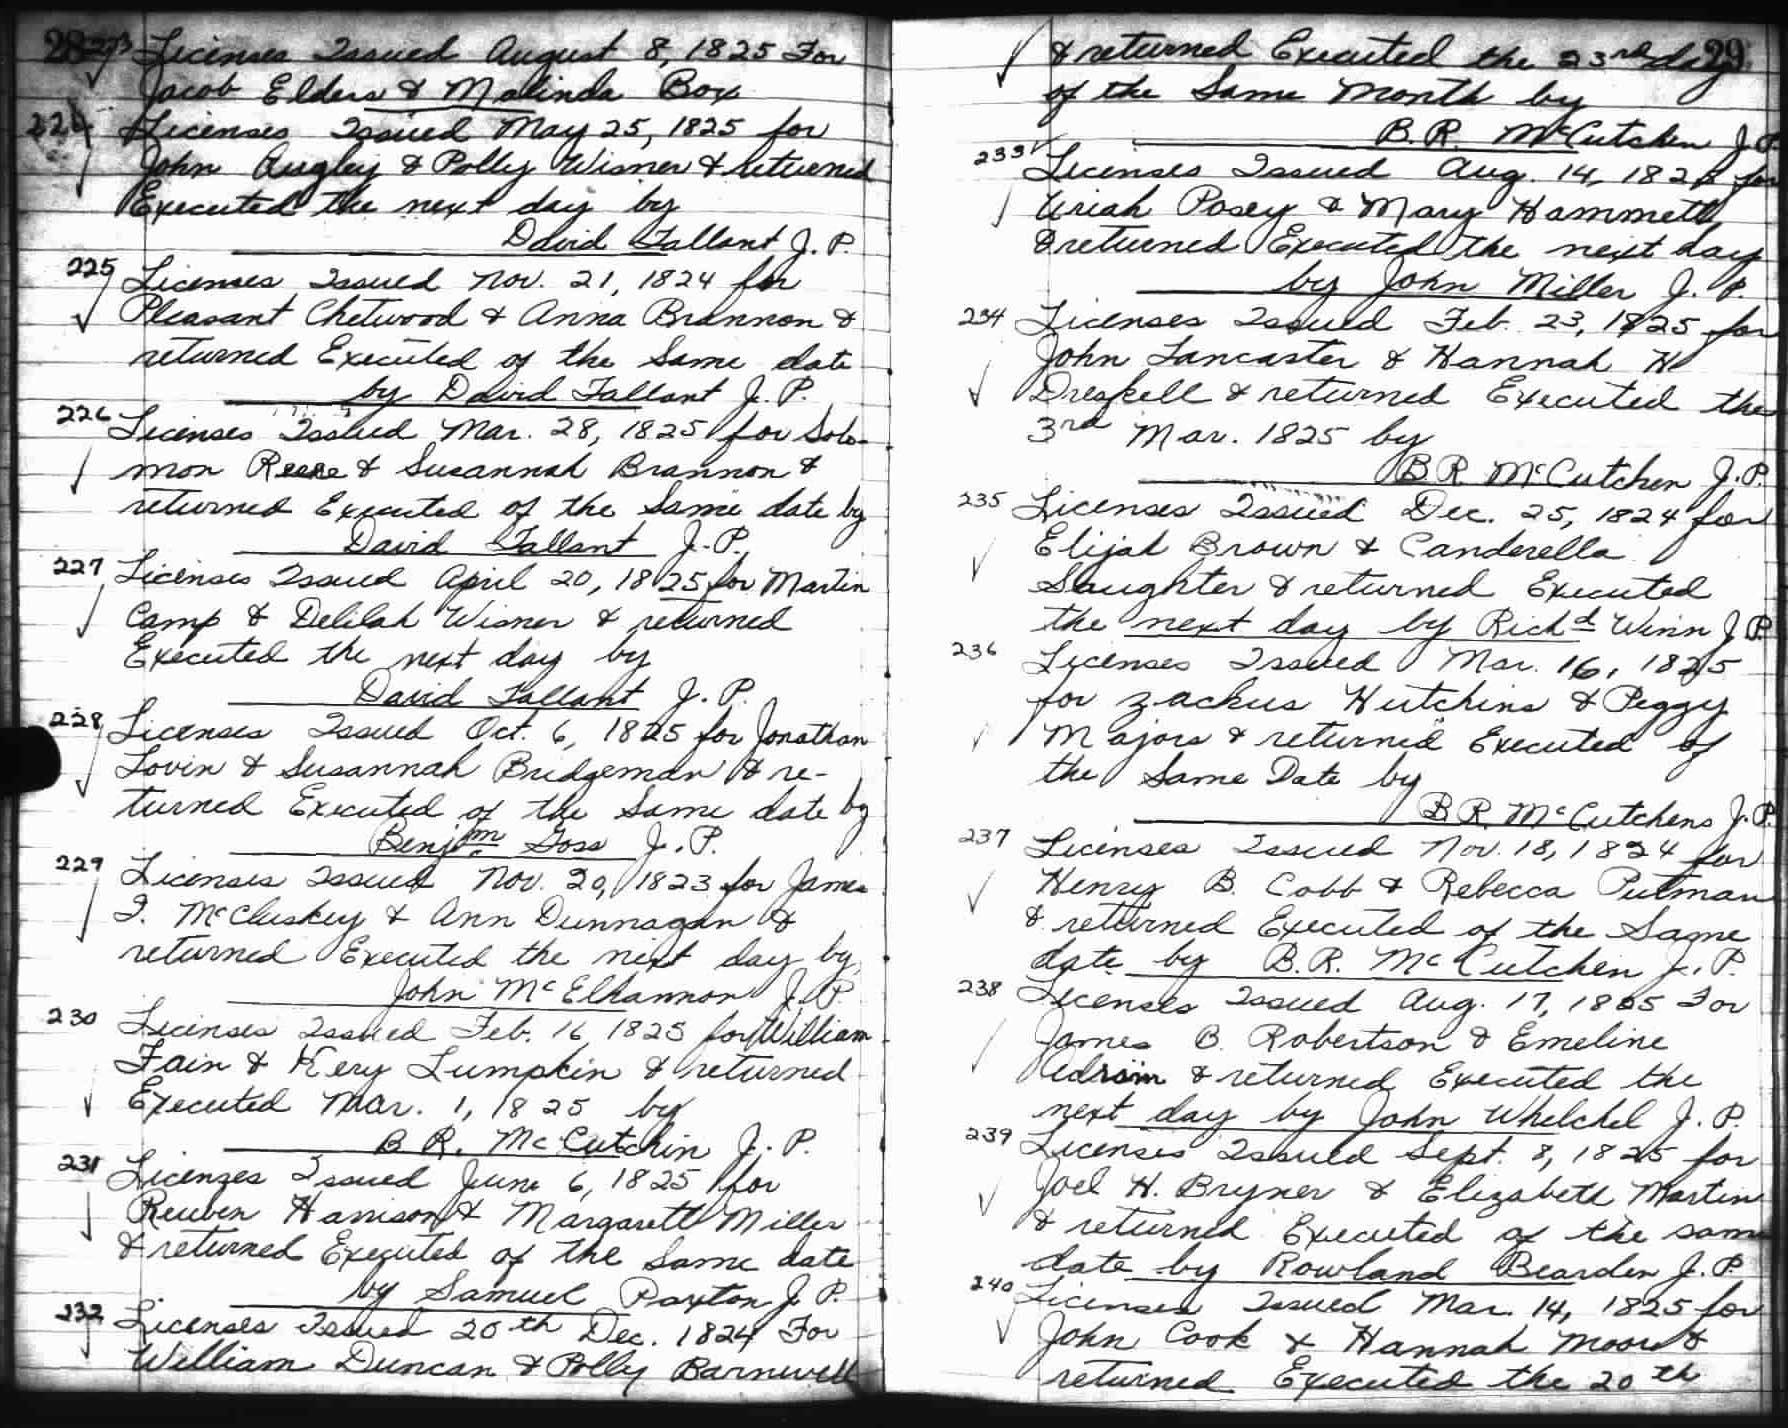 28 223 Licenses Issued August 8, 1825 For
Jacob Elders & Malinda Box
224 Licenses Issued May 25, 1825 for
John Augley & Polly Wisner & returned
Executed the next day by
David Tallant J. P.
225 Licenses Issued Nov. 21, 1824 for
Pleasant Chetwood & Anna Brannon &
returned Executed of the Same date
by David Tallant J. P.
226 Licenses Issued Mar. 28, 1825 for Solo-
mon Reese & Susannah Brannon &
returned Executed of the Same date by
David Tallant J. P.
227 Licenses Issued April 20, 1825 for Martin
Camp & Delilah Wisner & returned
Executed the next day by
David Tallant J. P.
228 Licenses Issued Oct. 6, 1825 for Jonathan
Lovin & Susannah Bridgeman & re-
turned Executed of the Same date by
Benjm Goss J. P.
229 Licenses Issued Nov. 20, 1823 for James
I. McCluskey & Ann Dunnagan &
returned Executed the next day by
John McElhannon J. P.
230 Licenses Issued Feb. 16 1825 for William
Fain & Kery Lumpkin & returned
Executed Mar. 1, 1825 by
B R. McCutchin J. P.
231 Licenses Issued June 6, 1825 for
Reuben Harrison & Margarett Miller
& returned Executed of the Same date
by Samuel Paxton J. P.
232 Licenses Issued 20th Dec. 1824 For
William Duncan & Polly Barnwell
29
& returned Executed the 23rd day
of the Same Month by
B. R. McCutchen J. P.
233 Licenses Issued Aug. 14, for
Uriah Posey & Mary Hammett
& returned Executed the next day
by John Miller J. P.
234 Licenses Issued Feb. 23, 1825 for
John Lancaster & Hannah H
Dreskell & returned Executed the
3rd Mar. 1825 by
B R McCutchen J. P.
235 Licenses Issued Dec. 25, 1824 for
Elijah Brown & Canderella
Slaughter & returned Executed
the next day by Richd Winn J P.
236 Licenses Issued Mar. 16, 1825
for Zackus Hutchins & Peggy
Majors & returned Executed of
the Same Date by
B R. McCutchens J. P.
237 Licenses Issued Nov. 18, 1824 for
Henry B. Cobb & Rebecca Putman
& returned Executed of the Same
date by B. R. McCutchen J. P.
238 Licenses Issued Aug. 17, 1825 For
James B. Robertson & Emeline
& returned Executed the
next day by John Whelchel J. P.
239 Licenses Issued Sept. 8, 1825 for
Joel H. Bryner & Elizabeth Martin
& returned Executed of the same
date by Rowland Bearden J. P.
240 Licenses Issued Mar. 14, 1825 for
John Cook & Hannah Moore &
returned Executed the 20th